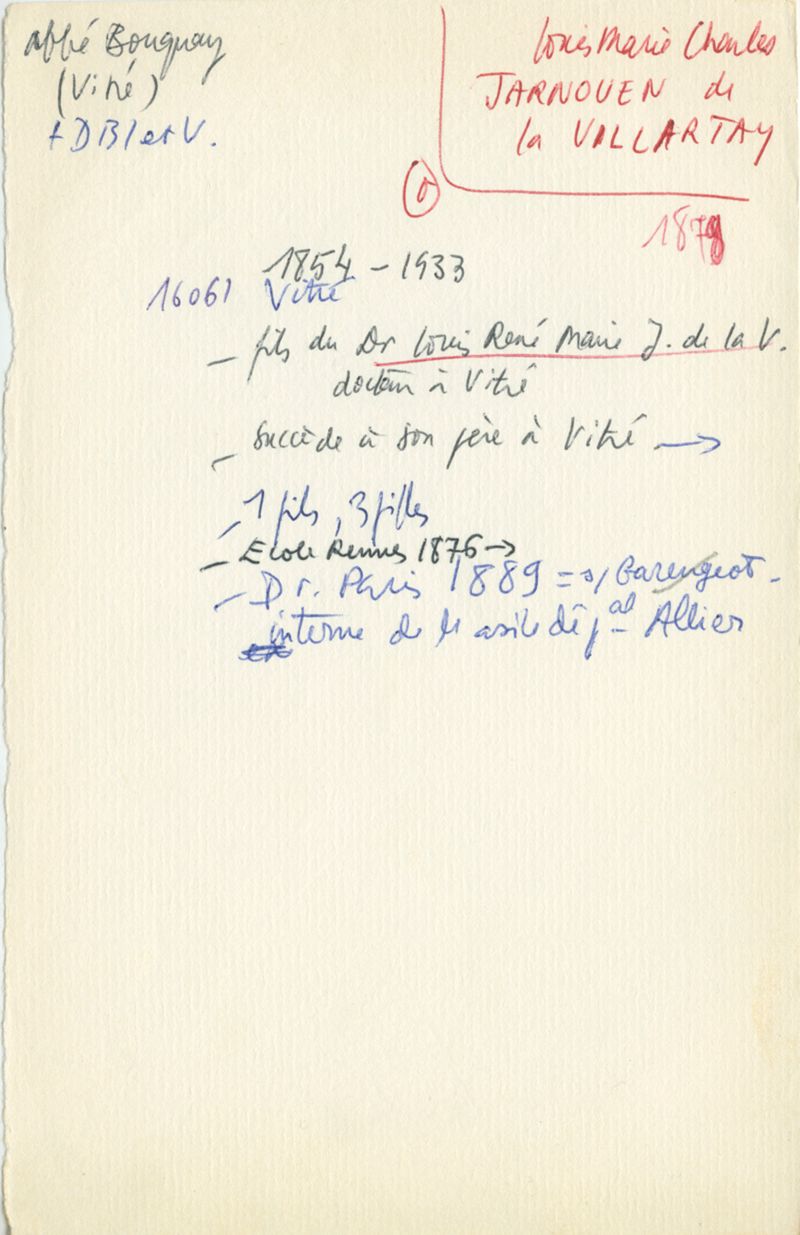 abbé Bouquay
(Vitré)
+ D B
Louis Marie Charles
JARNOUEN de
la VILLARTAY
187
1854 – 1933
16061 Vitré
– fils du Dr Louis René Marie J. de la V.
docteur à Vitré
– succède à son père à Vitré →
– 1 fils, 3 filles
– Ecole Rennes 1876 →
– Dr. Paris 1889 = s/ Garengeot –
interne de asile dép^al Allier